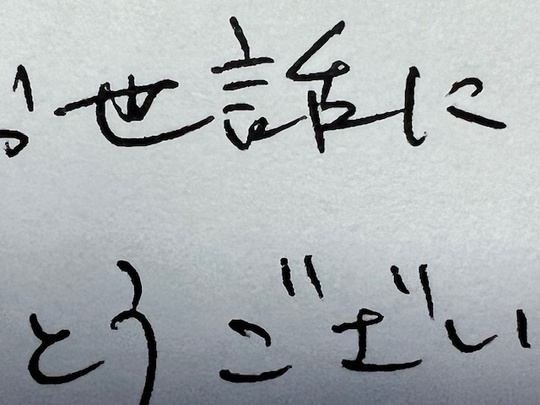 お世話に
とうござい